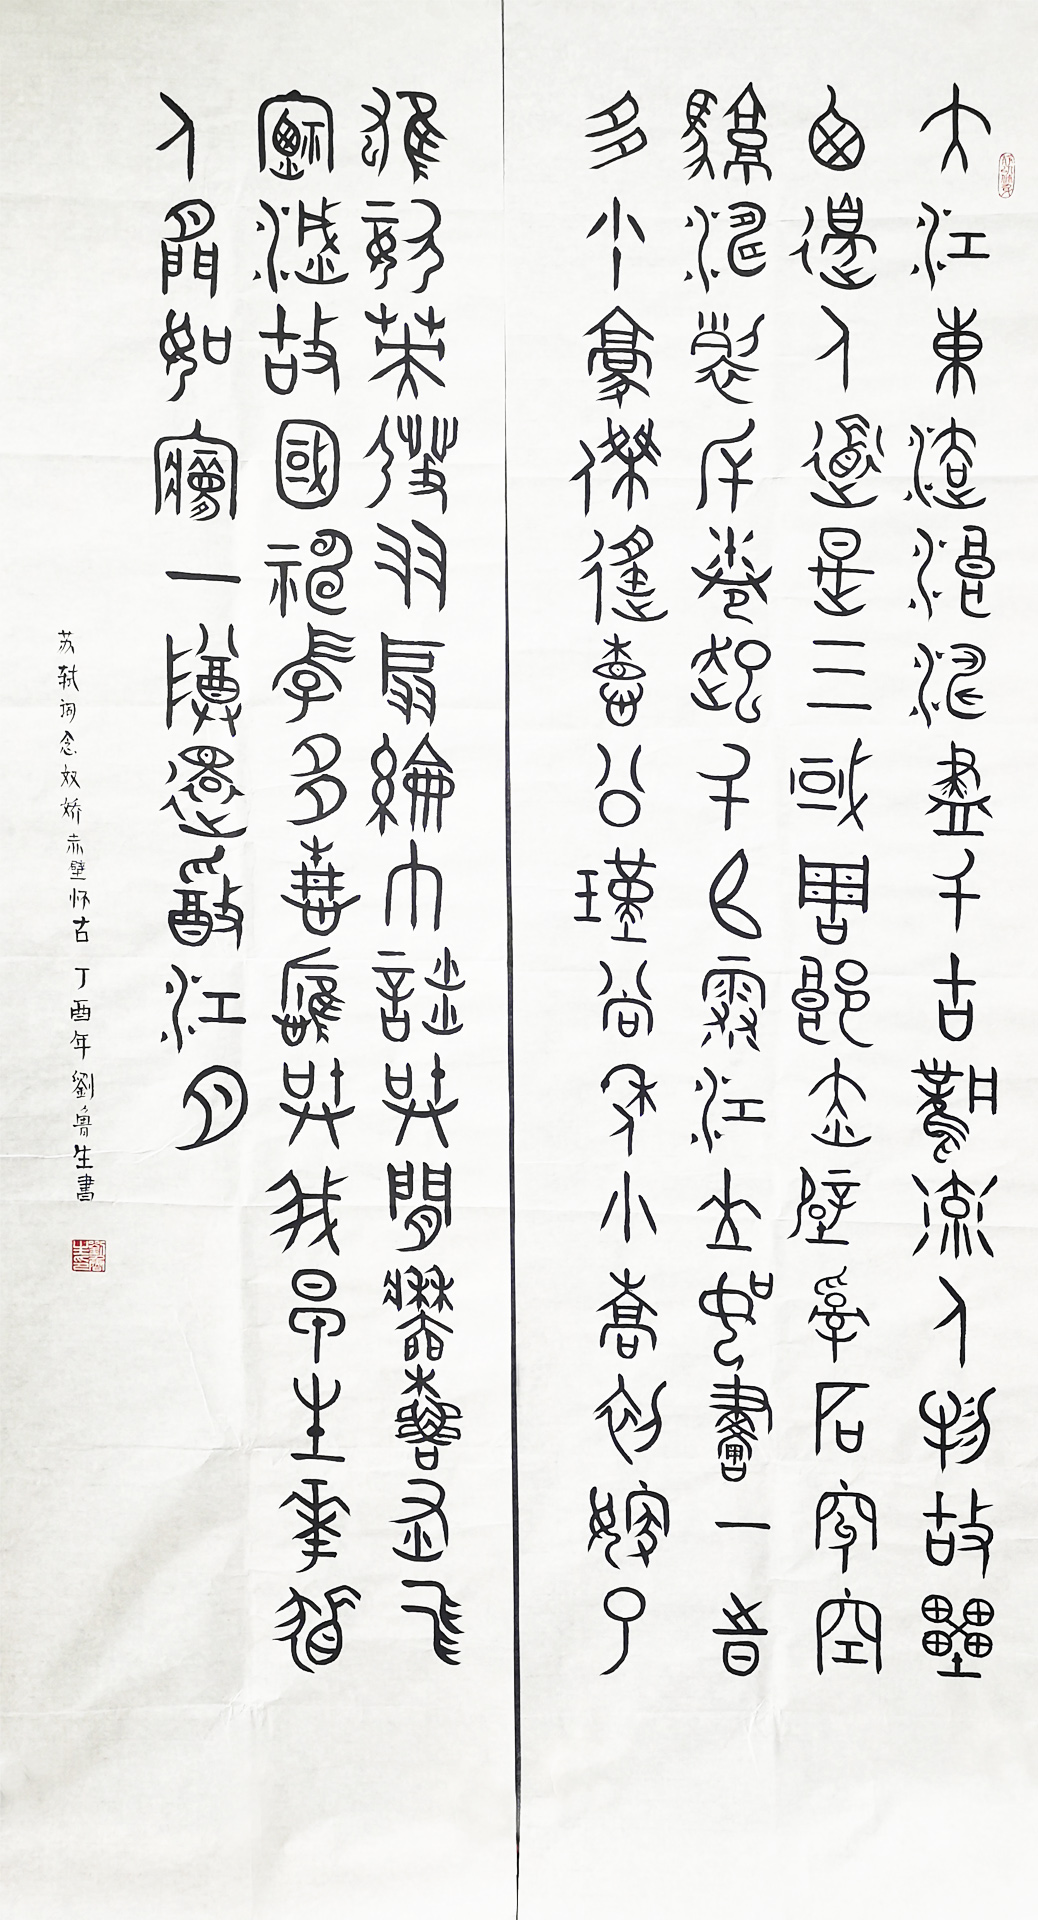 大江東去浪淘盡千古風流人物故壘
西邊人道是三國周郎赤壁亂石穿空
驚濤裂岸捲起千堆雪江山如畫一時
多少豪傑遙想公瑾當年小喬初嫁了
雄姿英發羽扇綸巾談笑間檣櫓灰飛
煙滅故國神遊多情應笑我早生華髮
人間如夢一尊還酹江月
苏轼词念奴娇赤壁怀古 丁酉年劉魯生書